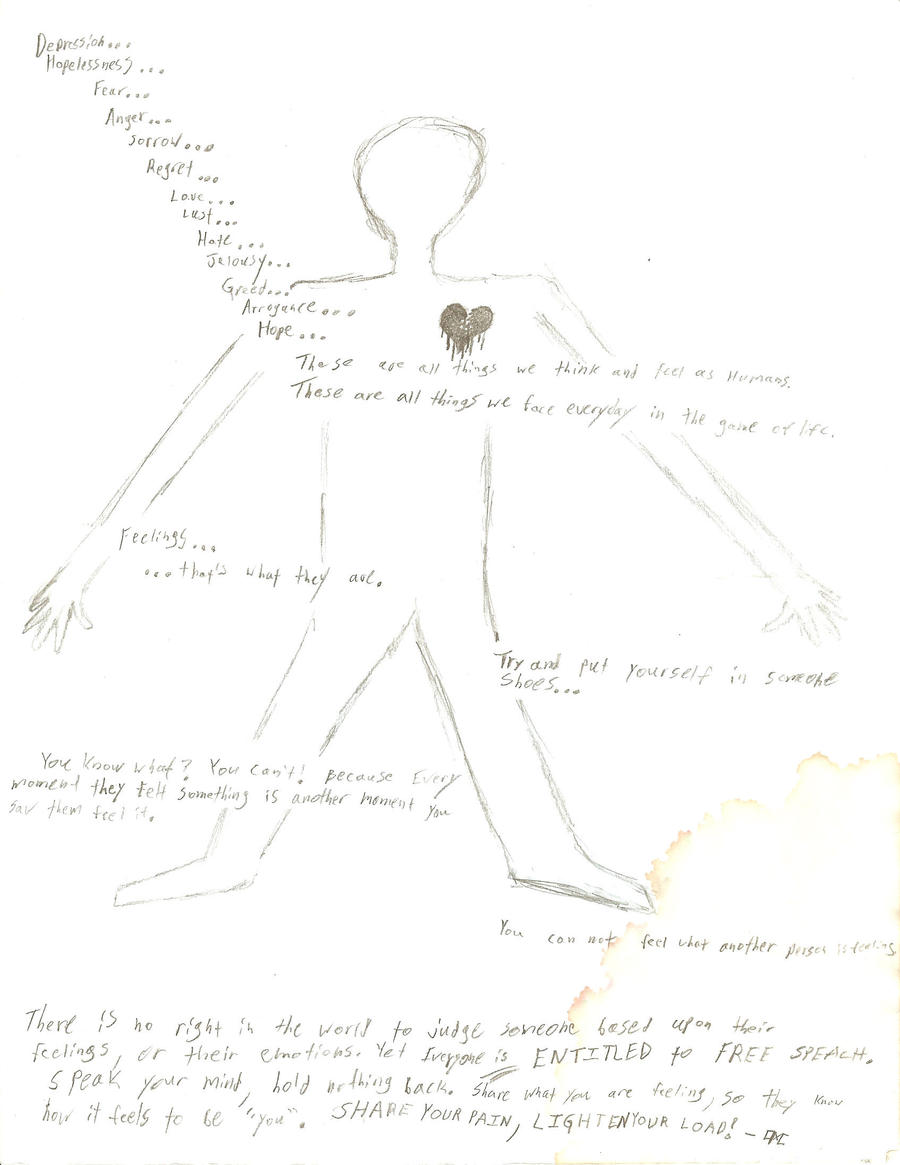 Depression...
Hopelessness...
Fear...
Anger...
Sorrow...
Regret...
Love...
Lust...
Hate...
Jelousy...
Greed...
Arrogance...
Hope...
These are all things we think and feel as Humans.
These are all things we face everyday in the game of life.
Feelings...
...that's what they are.
Try and put yourself in someone
Shoes...
You know what? You can't! Because Every
moment they felt something is another moment you
saw them feel it.
You can not feel what another person is feeling.
There is no right in the world to judge someone based upon their
feelings, or their emotions. Yet Everyone is ENTITLED to FREE SPEACH.
Speak your mind, hold nothing back. Share what you are feeling, so they know
how it feels to be "you". SHARE YOUR PAIN, LIGHTEN YOUR LOAD! -